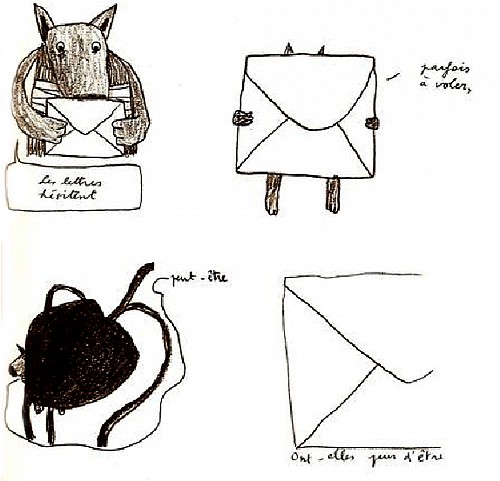 Les lettres
hésitent
parfois
à voler,
peut-être
Ont-elles peur d'être